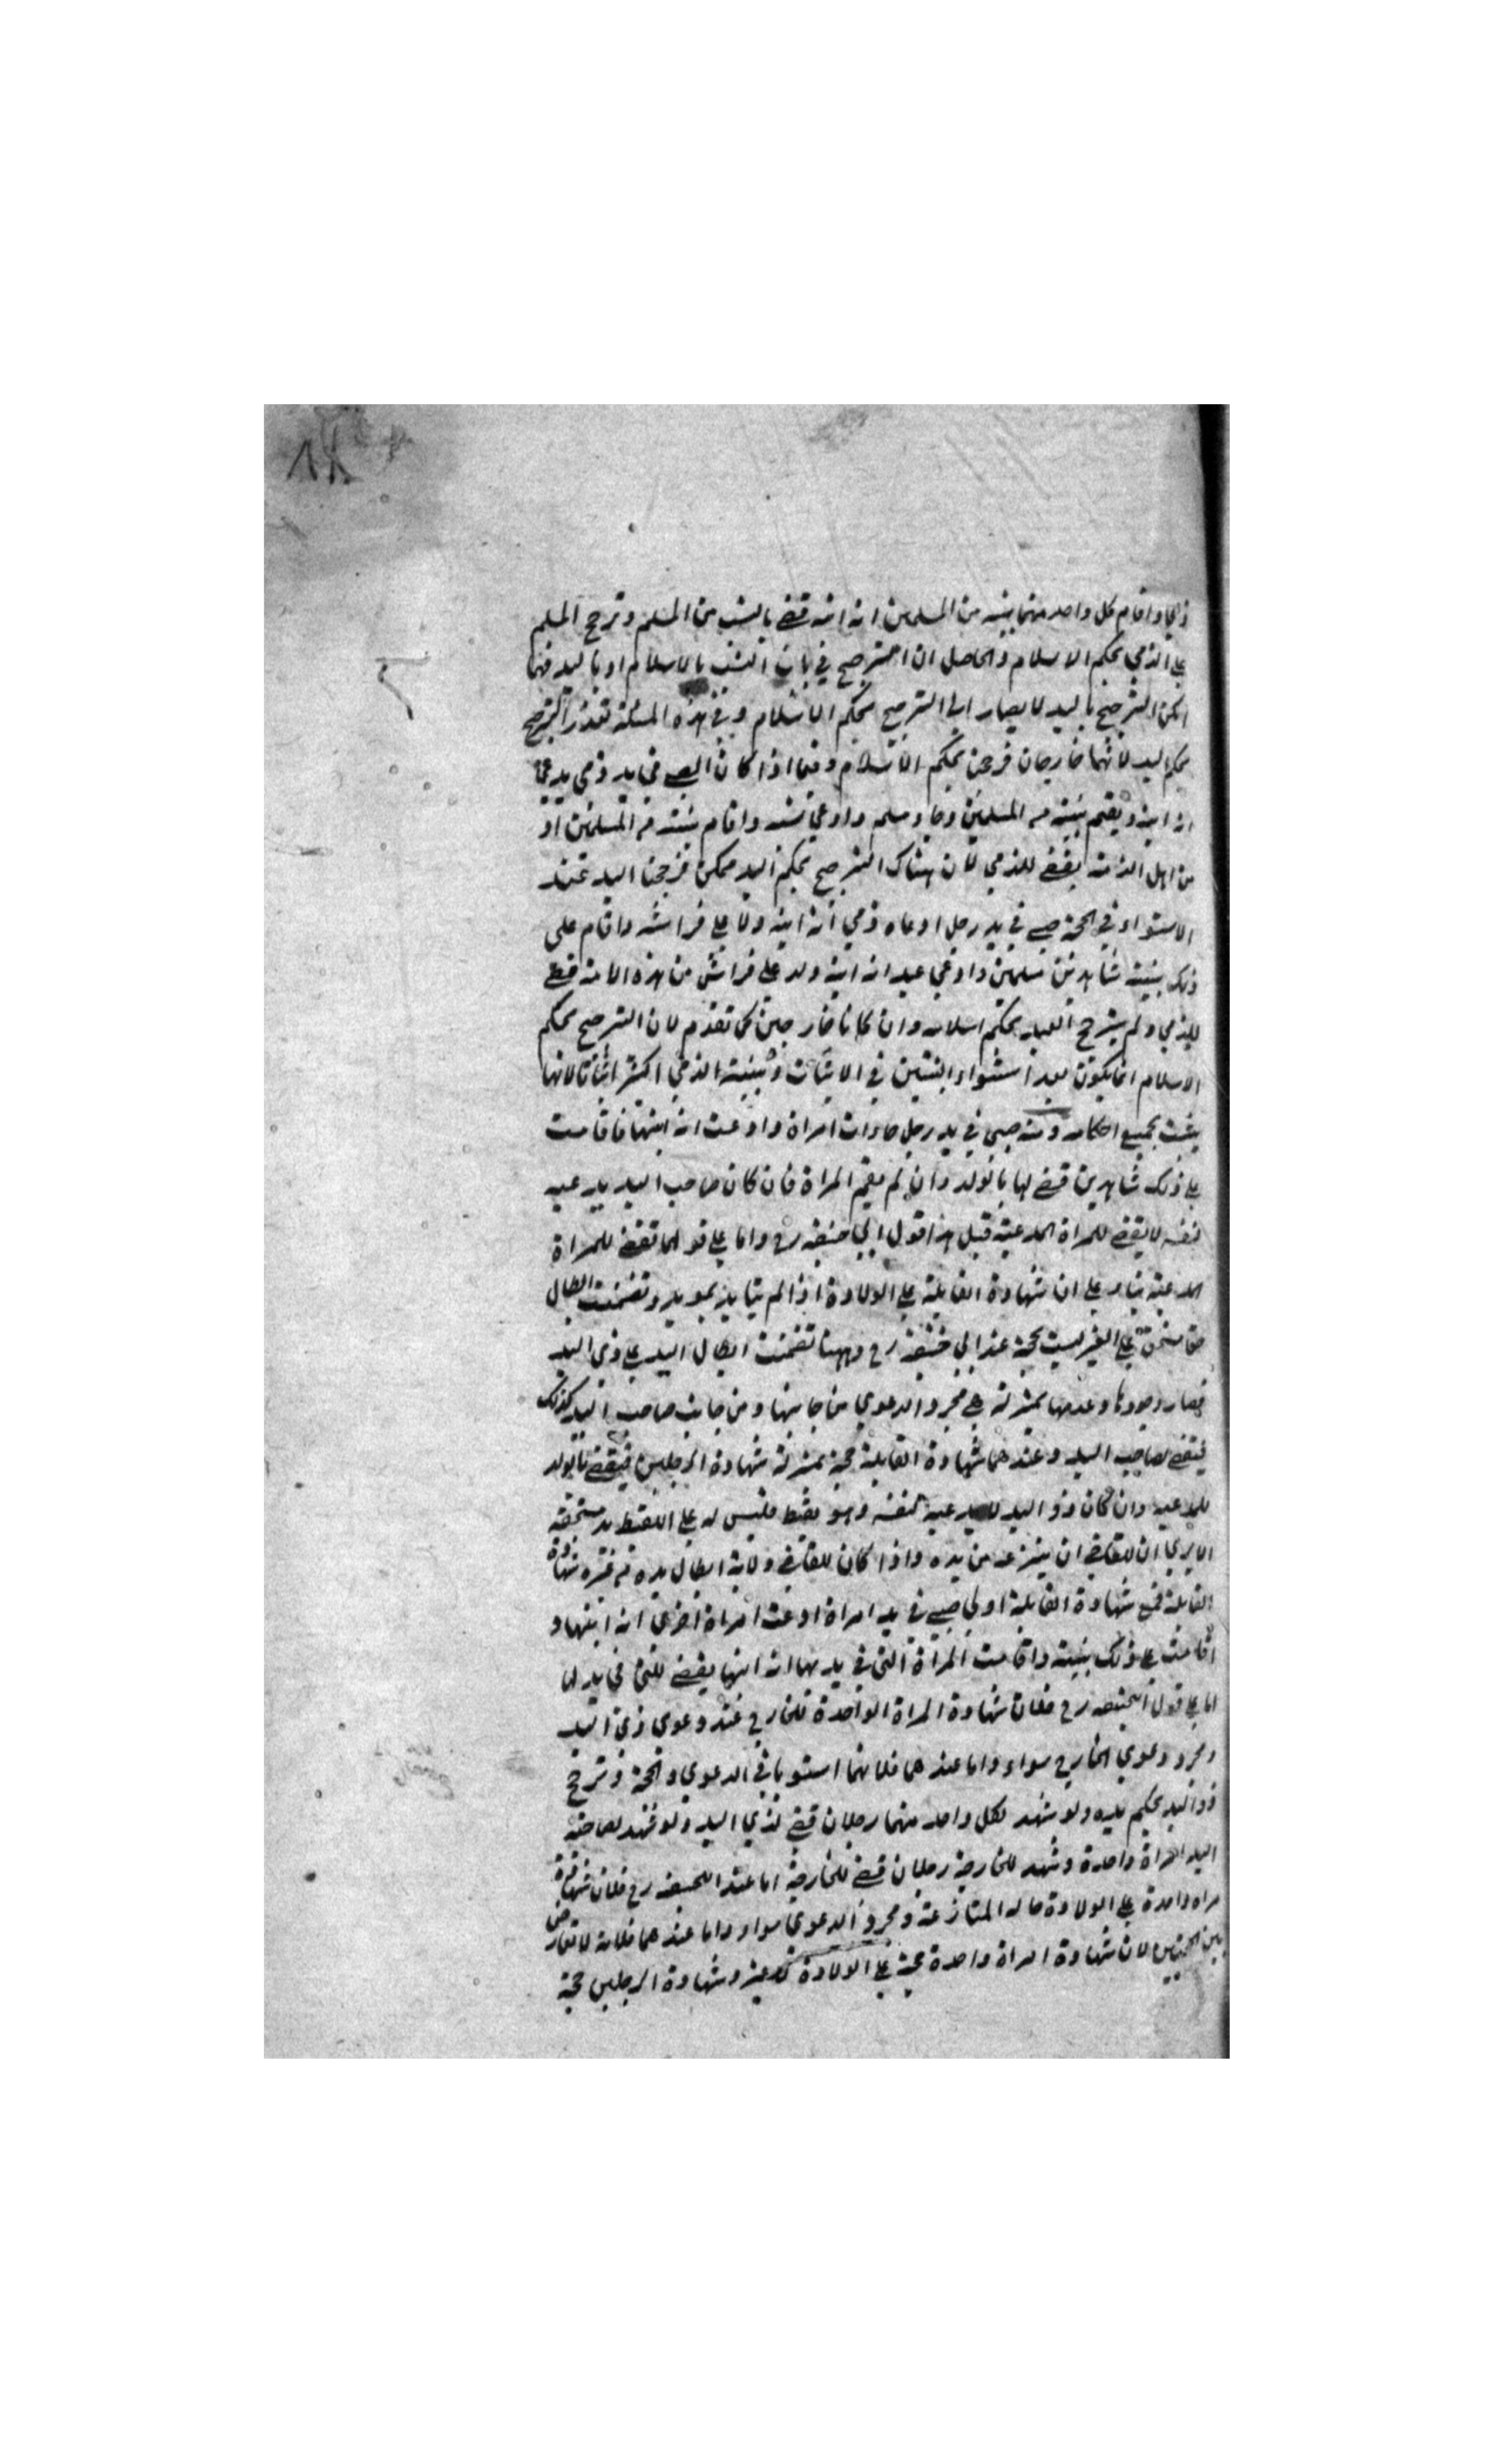 ذمي واقام كل واحد منهما بينه من المسلمين انه ابنه قضي بالنسب من المسلم وترجح المسلم
علي الذمي بحكم الاسلام والحاصل ان الترجيح في باب النسب بالاسلام او باليد فمهما
امكن الترجيح باليد لا يصار الي الترجيح بحكم الاسلام وفي هذه المسئلة تعذر الترجيح
بحكم اليد لانهما خارجان فرجحنا بحكم الاسلام وفيما اذا كان الصبي في يد ذمي يدعي
انه ابنه ويقيم بينة من المسلمين وجاء مسلم وادعي نسبه واقام بينة من المسلمين او
من اهل الذمة يقضي للذمي لان هناك الترجيح بحكم اليد ممكن فرجحنا اليد عند
الاستواء في الحجة صبي في يد رجل ادعاه ذمي انه ابنه ولد علي فراشه واقام علي
ذلك بينة شاهدين مسلمين وادعي عبد انه ابنه ولد علي فراش من هذه الامة قضي
للذمي ولم يترجح العبد بحكم اسلامه وان كانا خارجين كما تقدم لان الترجيح بحكم
الاسلام انما يكون بعد استواء البينتين في الاثبات وبينة الذمي اكثر اثباتا لانها
يثبت بجميع احكامه ومنه صبي في يد رجل جاءت امراة وادعت انه ابنها فاقامت
علي ذلك شاهدين قضي لها بالولد وان لم يقم المراة فان كان صاحب اليد يدعيه
لنفسه لا يقضي للمراة المدعية قيل هذا قول ابي حنيفه رح واما علي قولهما تقضي للمراة
المدعية بناء علي ان شهادة القابلة علي الولادة اذا لم يتايد بمويد وتضمنت ابطال
حق مستحق علي الغير ليست بحجة عند ابي حنيفه رح وههنا تضمنت ابطال اليد علي ذي اليد
فصار وجودها وعدمها بمنزلة بقي مجرد الدعوي من جانبها ومن جانب صاحب اليد كذلك
فيقضي لصاحب اليد وعندهما شهادة القابلة حجة بمنزلة شهادة الرجلين فيقضي بالولد
للمدعيه وان كان ذو اليد لا يدعيه لنفسه وهو لقيط فليس له علي اللقيط يد مستحقه
الا يري ان للقاضي ان ينزعه من يده واذا كان للقاضي ولاية ابطال يده من غير شهادة
القابلة فمع شهادة القابلة اولي صبي في يد امراة ادعت امراة اخري انه ابنها و
اقامت علي ذلك بينة واقامت المراة التي في يدها انه ابنها يقضي للتي في يدها
اما علي قول ابيحنيفه رح فلان شهادة المراة الواحدة للخارج عند دعوي ذي اليد
ومجرد دعوي الخارج سواء واما عندهما فلانهما استويا في الدعوي والحجة وترجح
ذو اليد بحكم يده ولو شهد لكل واحد منهما رجلان قضي لذي اليد ولو شهد لصاحبة
اليد امراة واحدة وشهد للخارجة رجلان قضي للخارجة اما عند ابيحنيفه رح فلان شهادة
مراة واحدة علي الولادة حالة المنازعة ومجرد الدعوي سواء واما عندهما فلانه لا تعارض
بين الحجتين لان شهادة امراة واحدة حجة علي الولادة وشهادة الرجلين حجة